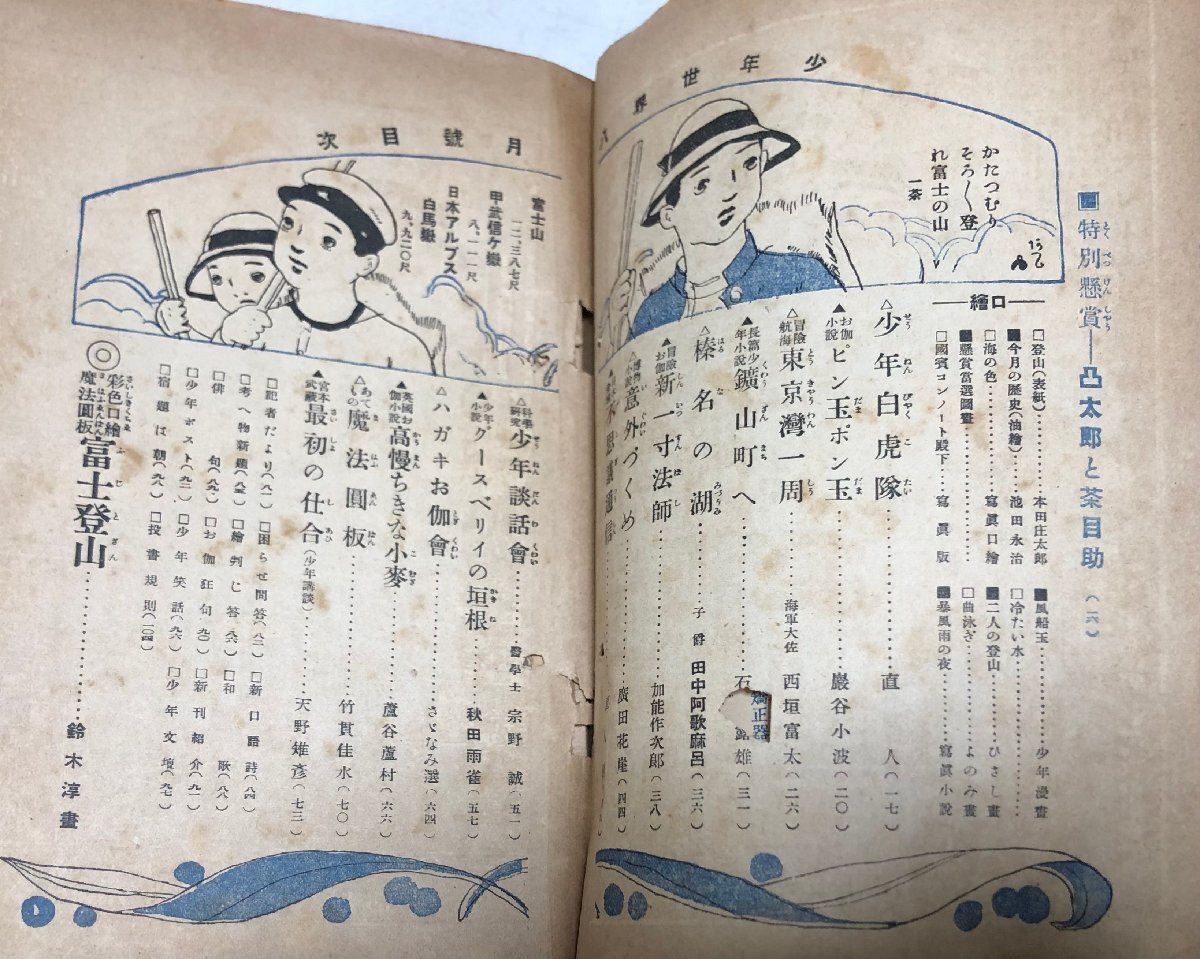 少年世界八
月號目次
■特別懸賞―凸太郎と茶目助(一六)
かたつむり
そろ〳〵登
れ富士の山
一茶
口繪
□登山(表紙)……本田庄太郎
■今月の歴史(油繪)…池田永治
□海の色……寫眞口繪
■懸賞當選圖畫
□國賓コンノート殿下…寫眞版
■風船玉……少年漫畫
□冷たい水
■二人の登山……ひさし畫
□曲泳ぎ……よのみ畫
■暴風雨の夜……寫眞小説
△少年白虎隊……直人(一七)
▲お伽小説ピン玉ポン玉……巖谷小波(二〇)
△冒險航海東京灣一周……海軍大佐 西垣富太(二六)
▲長篇少年小説鑛山町へ……石 雄(三一)
矯正器
△榛名の湖……子爵 田中阿歌麻呂(三六)
▲冒險お伽新一寸法師……加能作次郎(三八)
意外づくめ……廣田花崖(四四)
富士山
一二、三八七尺
甲武信ケ嶽
八、一一一尺
日本アルプス
白馬嶽
九、九二〇尺
△科學研究少年談話會……醫學士 宗野誠(五一)
▲少年小説グースベリイの垣根……秋田雨雀(五七)
△ハガキお伽會……さゞなみ選(六四)
▲英國お伽小説高慢ちきな小麥……蘆谷蘆村(六六)
△あてもの魔法圓板……竹貫佳水(七〇)
▲宮本武蔵最初の仕合(少年講談)……天野雉彥(七三)
□記者だより(八一)□困らせ問答(八二)□新口語詩(八四)
□考へ物新題(八五)□繪判じ答(八六)□和歌(八八)
□俳句(八九)□お伽狂句(九〇)□新刊紹介(九一)
□少年ポスト(九二)□少年笑話(九六)□少年文壇(九七)
□宿題は朝(九八)□投書規則(一〇四)
◎彩色口繪魔法圓板富士登山……鈴木淳畫